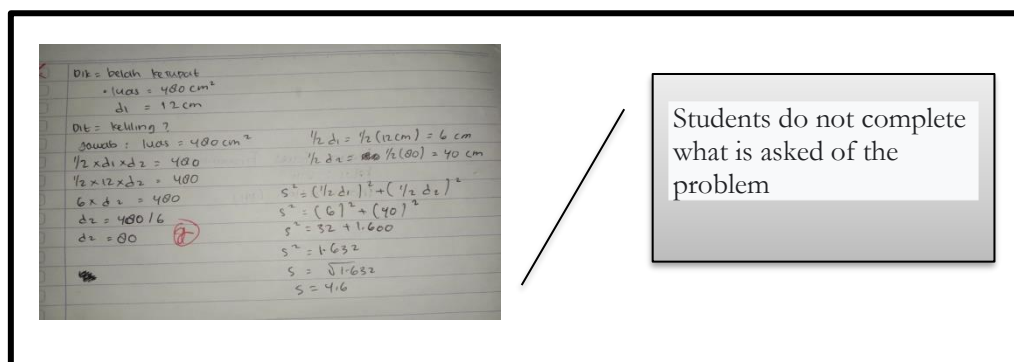 Dik = belah ketupat
• luas = 480 cm²
d1 = 12 cm
Dit = keliling ?
Jawab : luas = 480 cm²
1/2 x d1 x d2 = 480
1/2 x 12 x d2 = 480
6 x d2 = 480
d2 = 480/6
d2 = 80
1/2 d1 = 1/2 (12 cm) = 6 cm
1/2 d2 = 1/2 (80) = 40 cm
s² = (1/2 d1)² + (1/2 d2)²
s² = (6)² + (40)²
s² = 32 + 1.600
s² = 1.632
s = √1.632
s = 4,6
Students do not complete
what is asked of the
problem